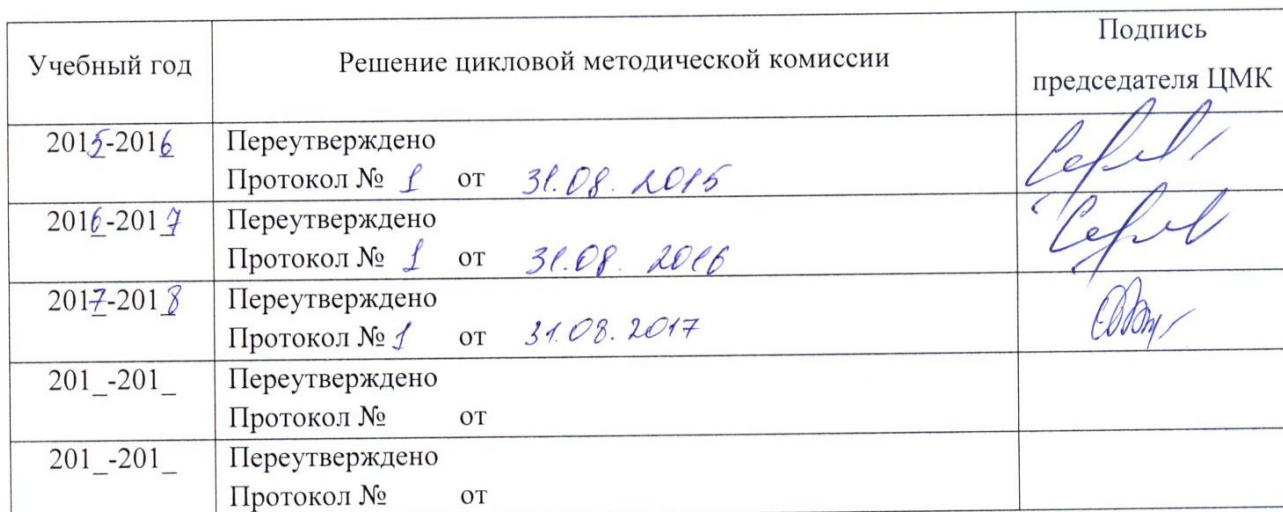 Учебный год
Решение цикловой методической комиссии
Подпись
председателя ЦМК
2015-2016
Переутверждено
Протокол № 1 от 31.08.2015
2016-2017
Переутверждено
Протокол № 1 от 31.08.2016
2017-2018
Переутверждено
Протокол № 1 от 31.08.2017
201_-201_
Переутверждено
Протокол № от
201_-201_
Переутверждено
Протокол № от